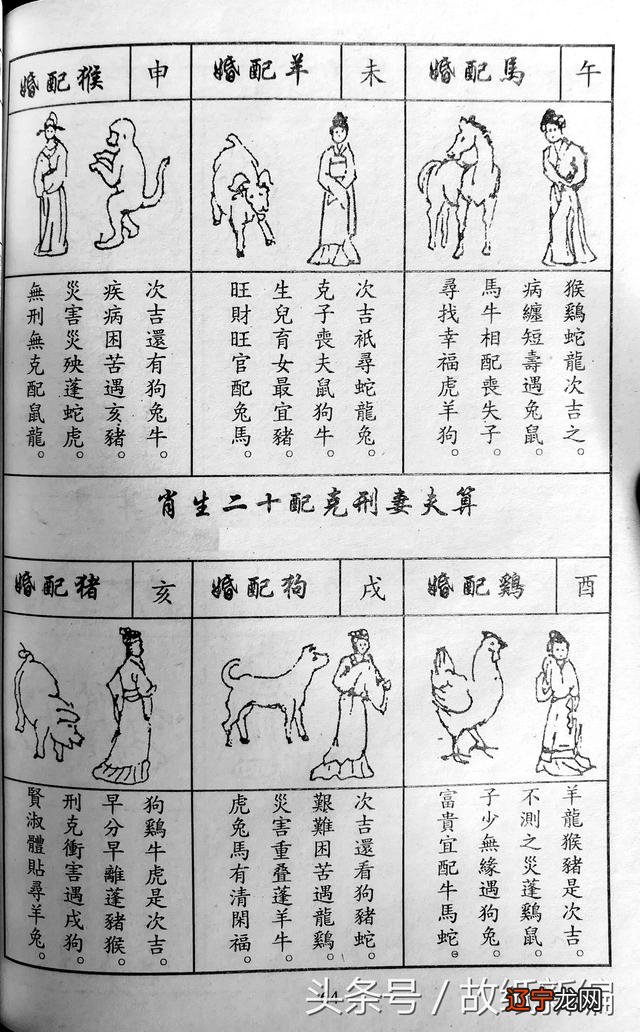 午
馬配婚
猴鷄蛇龍次吉之。
病纏短壽遇兔鼠。
馬牛相配喪失子。
尋找幸福虎羊狗。
未
羊配婚
次吉祇尋蛇龍兔。
克子喪夫鼠狗牛。
生兒育女最宜豬。
旺財旺官配兔馬。
申
猴配婚
次吉還有狗兔牛。
疾病困苦遇亥豬。
災害災殃蓬蛇虎。
無刑無克配鼠龍。
算夫妻刑克配十二生肖
酉
鷄配婚
羊龍猴豬是次吉。
不測之災蓬鷄鼠。
子少無緣遇狗兔。
富貴宜配牛馬蛇。
戌
狗配婚
次吉還看狗豬蛇。
艱難困苦遇龍鷄。
災害重叠蓬羊牛。
虎兔馬有清閑福。
亥
猪配婚
狗鷄牛虎是次吉。
早分早離蓬豬猴。
刑克衝害遇戌狗。
賢淑體貼尋羊兔。
头条号 / 故纸
辽宁龙网